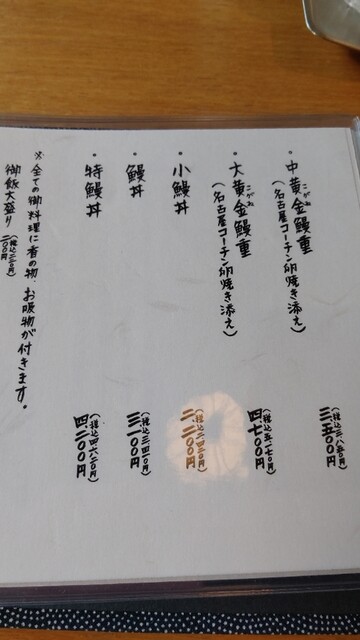 ・中黄金鰻重
こがね
(名古屋コーチン卵焼き添え)
(税込三八五〇円)
三五〇〇円
・大黄金鰻重
こがね
(名古屋コーチン卵焼き添え)
(税込五一七〇円)
四七〇〇円
・小鰻丼
(税込二四二〇円)
二二〇〇円
・鰻丼
(税込三四一〇円)
三一〇〇円
・特鰻丼
(税込四六二〇円)
四二〇〇円
※全ての御料理に香の物、お吸物が付きます。
御飯大盛り
(税込二二〇円)
二〇〇円